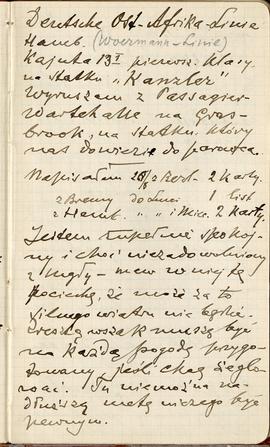 Deutsche Ost-Afrika-Linie
Hamb. (Woermann-Linie)
Kajuta 13I pierwsz. klasy
na statku "Kanzler"
Wyruszam z Passagier-
Wartehalle na Gras-
brook, na statku, który
nas dowiezie do parowca.
Napisałem 28/8 z Rott. 2 karty
z Bremy do Luci 1 list
z Hamb. " " i Mic. 2 karty.
Jestem zupełnie spokoj-
ny i choć niezadowolony
z mgły - mam w niej tę
pociechę, że może za to
silnego wiatru nie będzie.
Zresztą wszak muszę być
na każdą pogodę przygo-
towany, jeśli chcę żeglo-
wać. Tu niemożna na
dłuższą metę niczego być
pewnym.